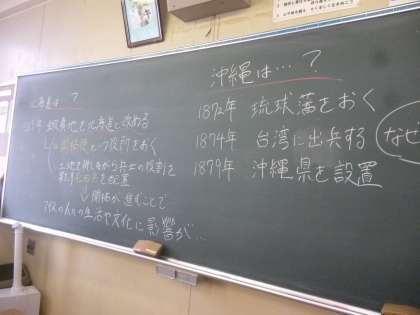 北海道は?
蝦夷地を北海道と改める
開拓使という役所をおく
土地を耕しながら兵士の役割を
↓開拓が進むことで
アイヌの人々の生活や文化に影響が…
沖縄は…?
1872年 琉球藩をおく
1874年 台湾に出兵する
1879年 沖縄県を設置
なぜ